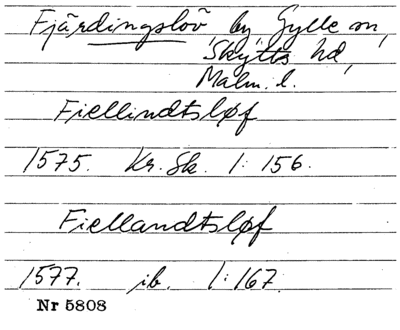 Fjärdingslöv, by, Gylle sn,
Skytts hd,
Malm. l.
Fiellindtsløf
1575. Kr. Sk. 1: 156.
Fiellandtsløf
1577. ib. 1: 167.
Nr 5808